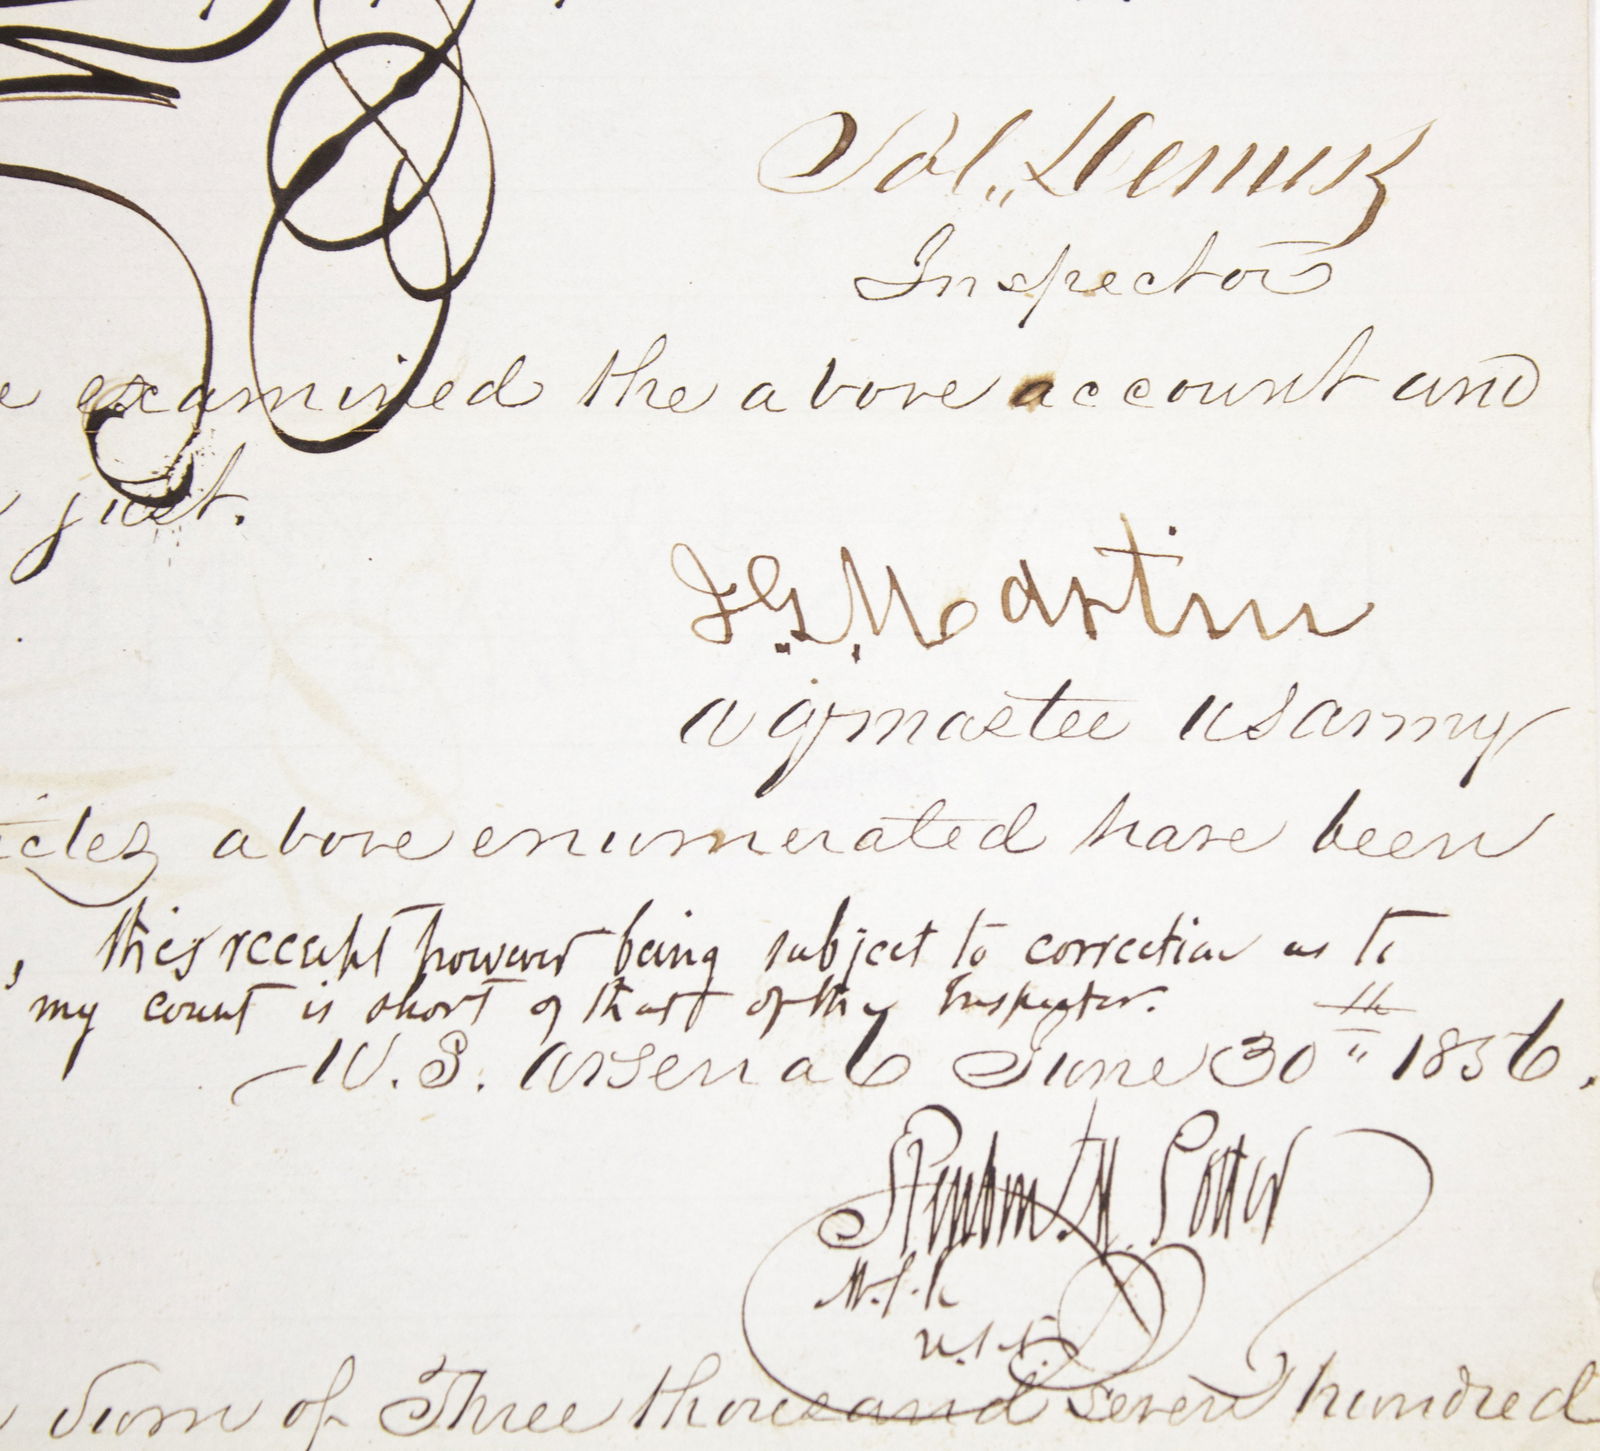 Sol. Dennis
Inspector
e examined the above account and
just.
J. G. Martin
a q master u s army
icles above enumerated have been
, this receipt however being subject to correction as to
my count is short of that of the Inspector.
U. S. Arsenal June 30th 1856.
R. M. Potter
M. S. K.
U. S. A.
Sum of Three thousand seven hundred